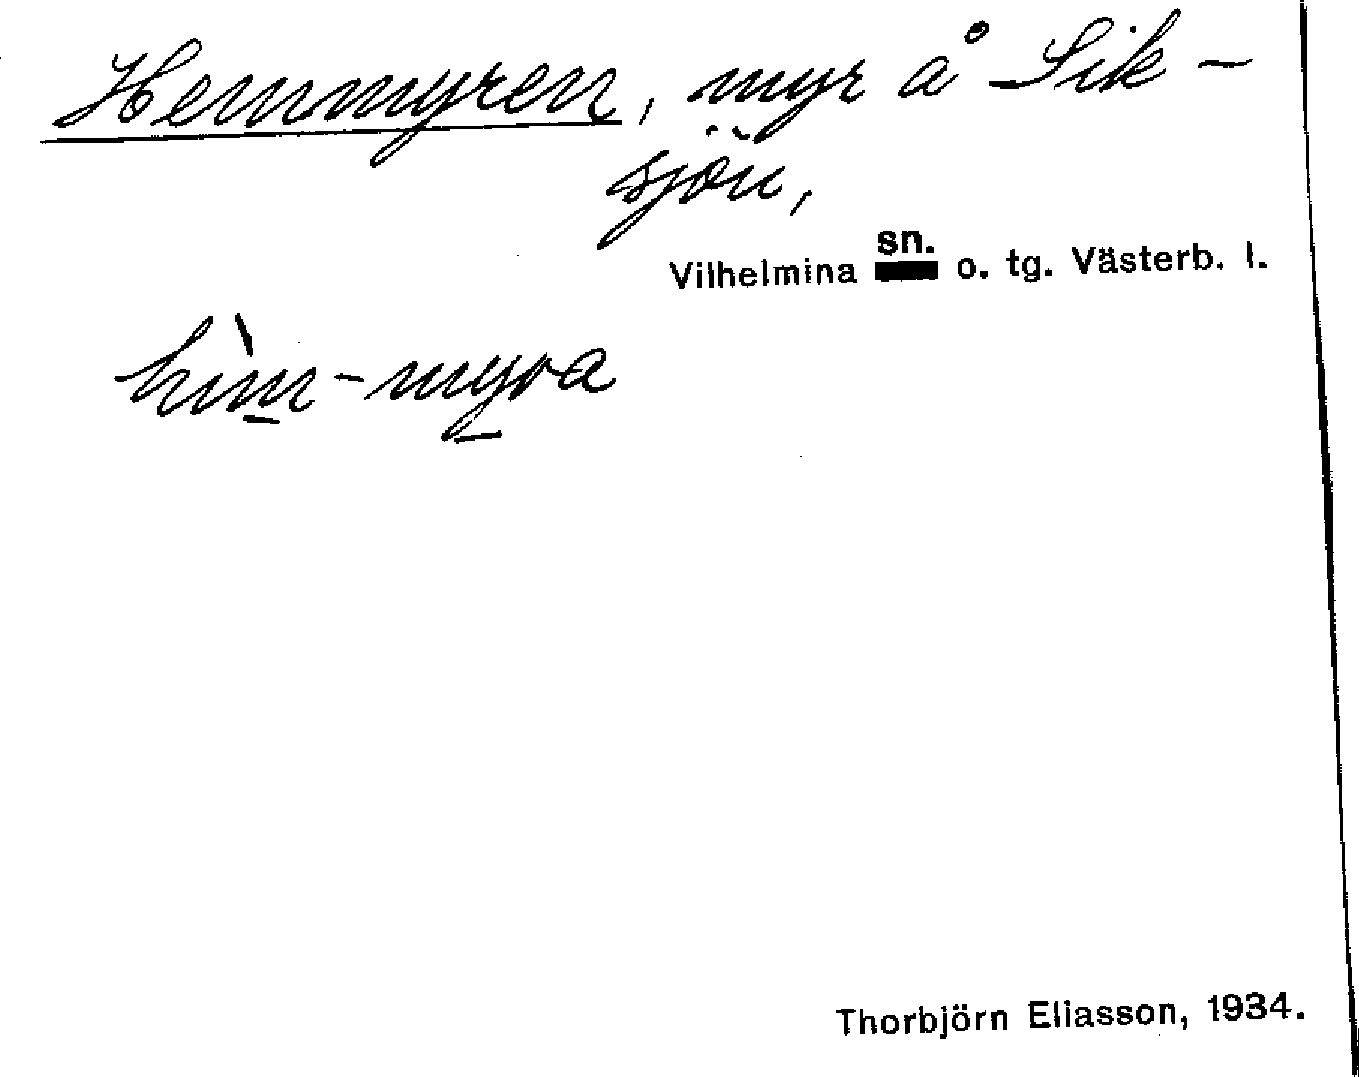 Hemmyren, myr å Sik-
sjön,
Vilhelmina sn. o. tg. Västerb. l.
hìm-myra
Thorbjörn Eliasson, 1934.